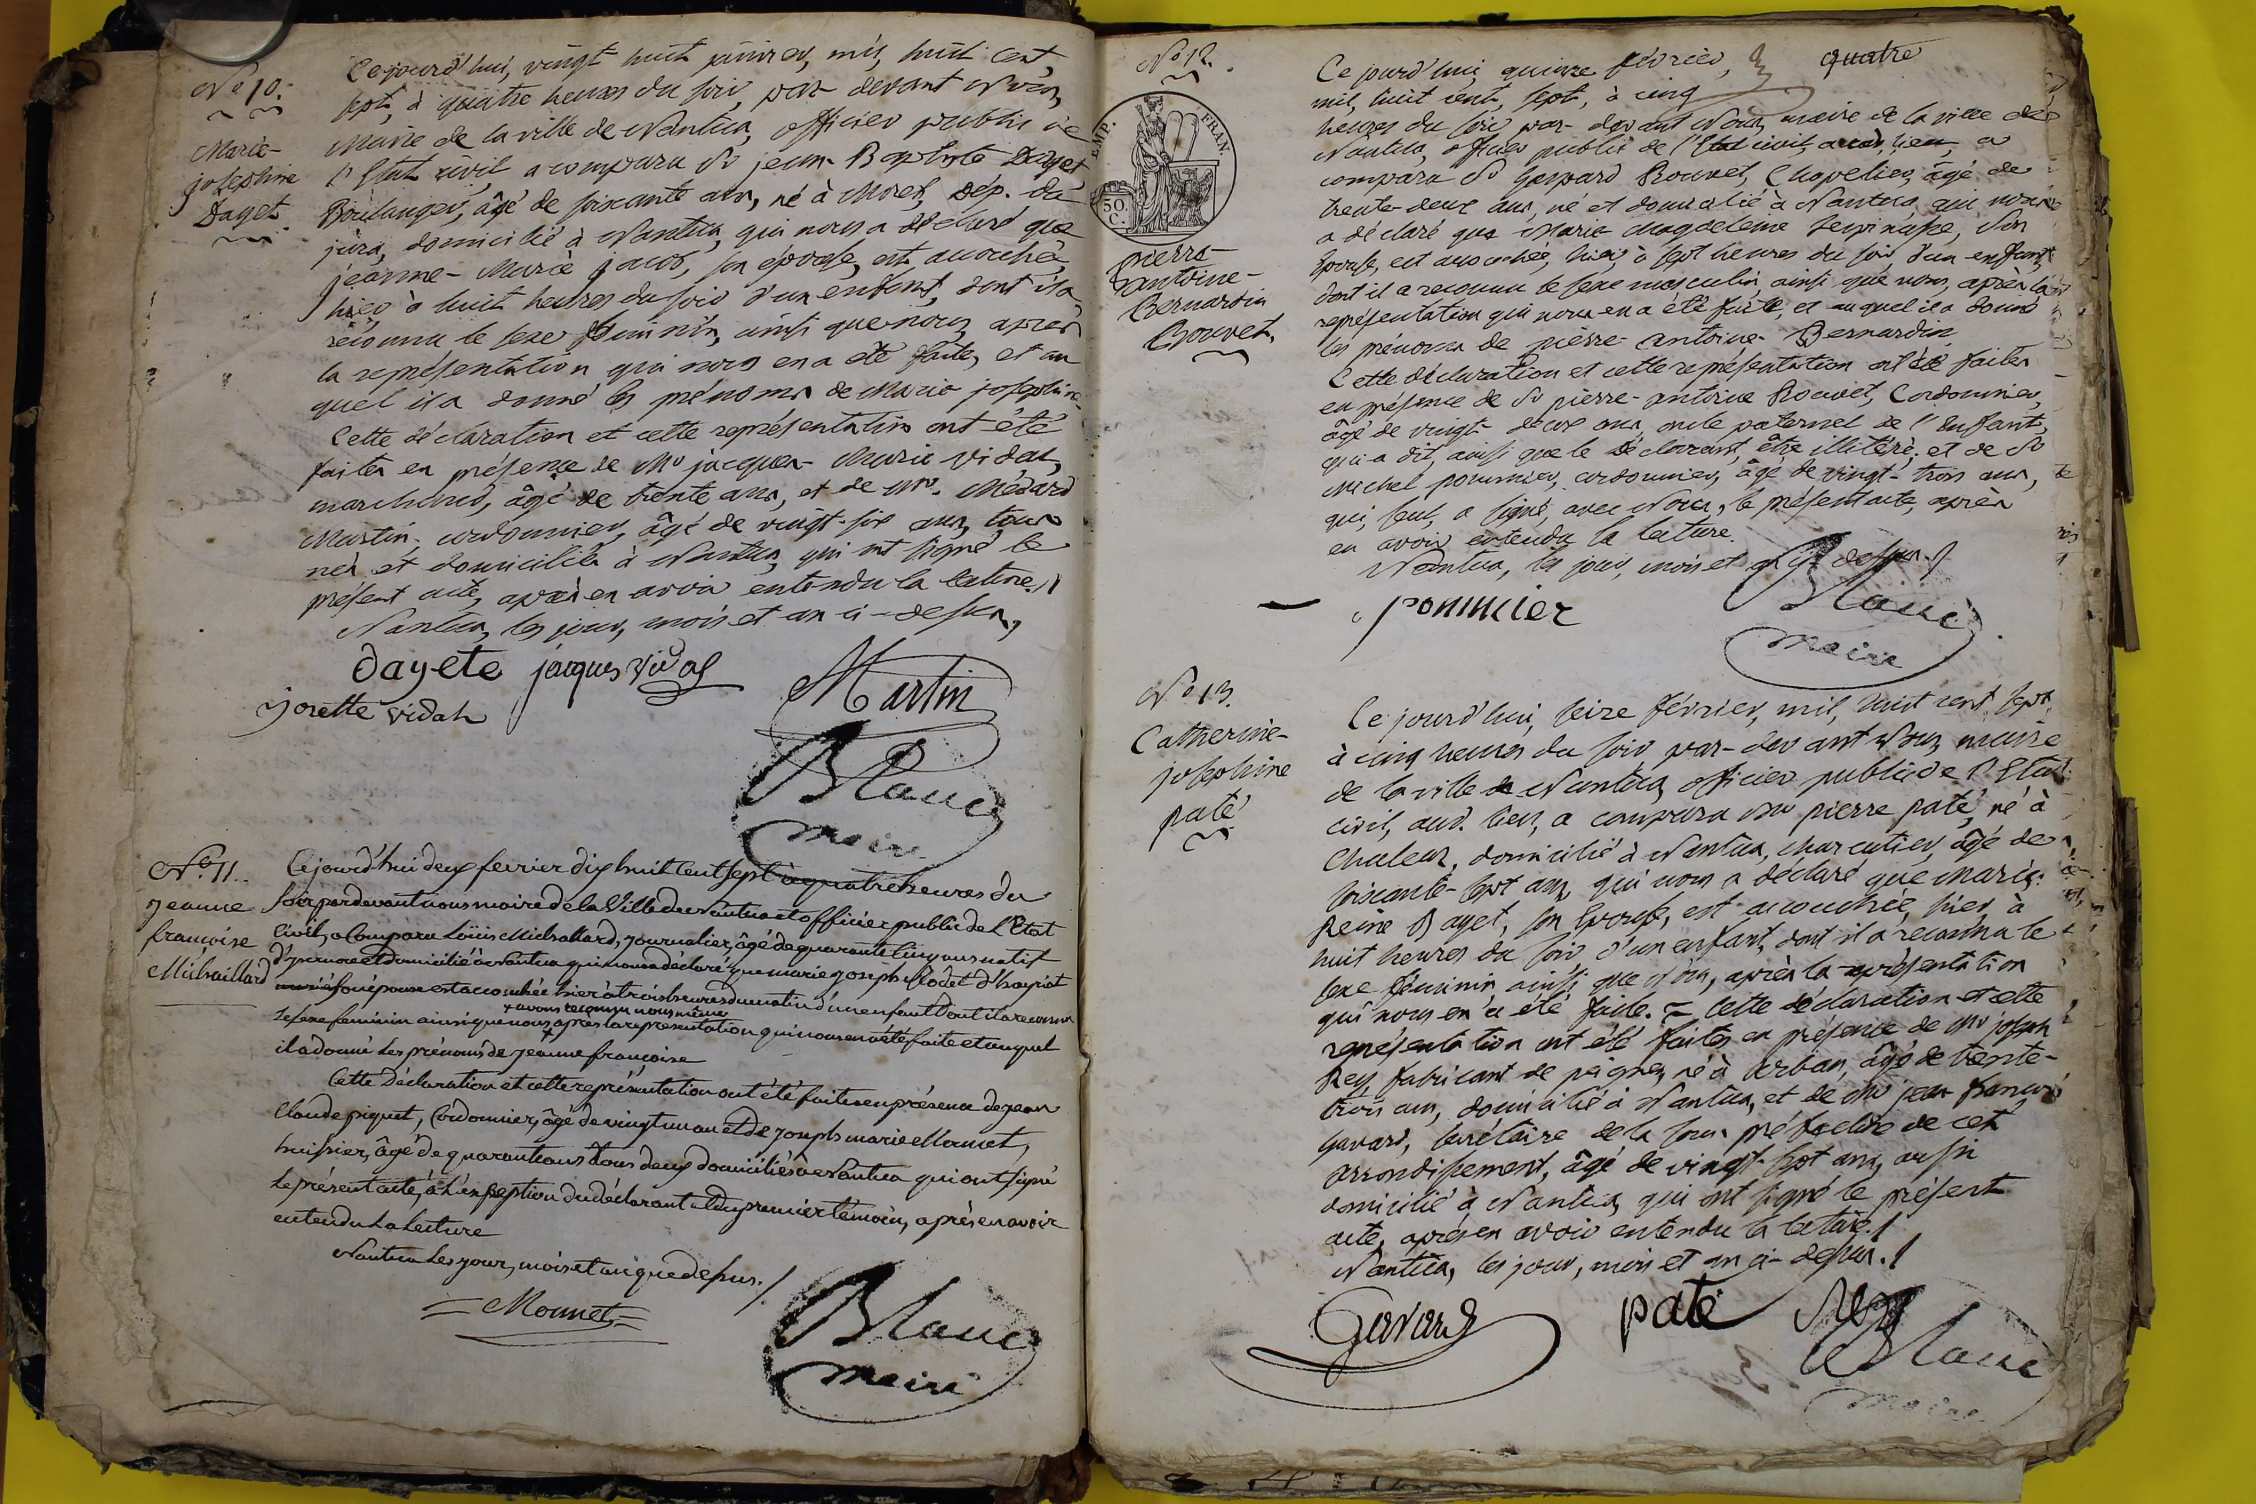 N.o 10.
Marie-
josephine
Dayet
Ce jourd'hui, vingt huit janvier, mil, huit cent,
sept, à quatre heures du soir, par-devant Nous,
Maire de la ville de Nantua, officier public de
l'Etat civil, a comparu Sr jean-Baptiste Dayet
Boulanger, âgé de soixante ans, né à Morez, Dép. du
jura, domicilié à Nantua, qui nous a déclaré que
jeanne-Marie jacob, son épouse, est accouchée
hier à huit heures du soir d'un enfant, dont il a
reconnu le sexe féminin, ainsi que nous, après
la représentation qui nous en a été faite, et au
quel il a donné les prénoms de Marie josephine.
Cette déclaration et cette représentation ont été
faites en présence de Mr jacques-Marie vidal,
marchand, âgé de trente ans, et de Mr. Médard
Martin, cordonnier, âgé de vingt-six ans, tous
nés et domiciliés à Nantua, qui ont signé le
présent acte, après en avoir entendu la lecture./
Nantua, les jour, mois et an ci-dessus,
dayete jacques vidal
Martin
josette vidal
Blanc
maire
N.o 11.
jeanne
françoise
Michaillard
Cejourd'hui deux fevrier dix huit cent sept à quatre heures du
soir pardevant nous maire de la Ville de Nantua et officier public de l'Etat
Civil, a Comparu Loüis Michaillard, journalier, âgé de quarante cinq ans natif
et domicilié à Nantua qui nous a déclaré que marie joseph
son épouse est accouchée hier à trois heures du matin d'un enfant dont il a reconnu
+ avons reconnu nous même
Le sexe feminin ainsi que nous + après la représentation qui nous en a été faite et auquel
il a donné Les prénoms de jeanne françoise
Cette Déclaration et cette représentation ont été faites en présence de jean
Claude piquet, Cordonnier, âgé de vingt un an et de joseph marie Monnet,
huissier, âgé de quarante ans tous deux domiciliés à Nantua qui ont signé
Le présent acte, à L'exception du déclarant et du premier témoin, après en avoir
entendu La Lecture
Nantua Les jour, mois et an que dessus./
Monnet
Blanc
maire
N.o 12.
EMP. FRAN.
50 C.
pierre-
antoine-
Bernardin
Bouvet.
quatre
Ce jourd'hui, quinze février,
mil, huit cent, sept, à cinq
heures du soir par-devant Nous, maire de la ville de
Nantua, officier public de l'Etat civil, aud. lieu, a
comparu Sr Gaspard Bouvet, Chapelier, âgé de
trente-deux ans, né et domicilié à Nantua, qui nous
a déclaré que Marie Magdeleine Lespinasse, Son
Epouse, est accouchée, hier, à sept heures du soir, d'un enfant,
dont il a reconnu le sexe masculin, ainsi que nous, après la
représentation qui nous en a été faite, et auquel il a donné
les prénoms de pierre-antoine-Bernardin
Cette déclaration et cette représentation ont été faites
en présence de Sr pierre-antoine Bouvet, Cordonnier,
âgé de vingt-deux ans, oncle paternel de l'Enfant,
qui a dit, ainsi que le Déclarant, être illitéré; et de Sr
Michel pommier, cordonnier, âgé de vingt-trois ans,
qui, seul, a signé, avec Nous, le présent acte, après
en avoir entendu la lecture.
Nantua, les jour, mois et an que dessus./
pommier
Blanc
maire
N.o 13.
Catherine-
josephine
paté
Ce jourd'hui, seize février, mil, huit cent sept,
à cinq heures du soir par-devant Nous, maire
de la ville de Nantua, officier public de l'Etat
civil, aud. lieu, a comparu Mr pierre paté, né à
domicilié à Nantua, charcutier, âgé de
soixante-sept ans, qui nous a déclaré que Marie:
Reine Bayet, son Epouse, est accouchée, hier, à
huit heures du soir d'un enfant, dont il a reconnu le
sexe féminin ainsi que Nous, après la représentation
qui nous en a été faite. = Cette déclaration et cette
représentation ont été faites en présence de Mr joseph
Rey, fabricant de peignes, né à arban, âgé de trente-
trois ans, domicilié à Nantua, et de Mr jean françois
Gavard, secrétaire de la sous préfecture de cet
arrondissement, âgé de vingt-sept ans, aussi
domicilié à Nantua, qui ont signé le présent
acte, après en avoir entendu la lecture./
Nantua, les jour, mois et an ci-dessus./
Gavard paté Rey
Blanc
maire